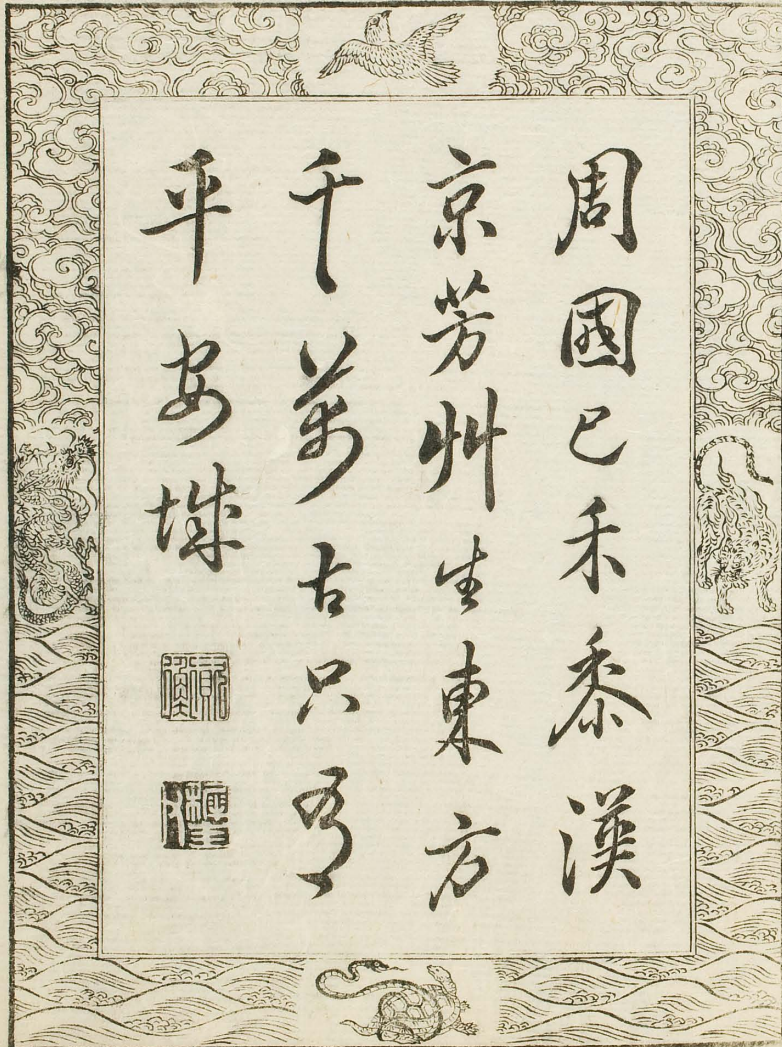 周國已禾黍漢
京芳艸生東方
千萬古只有
平安城